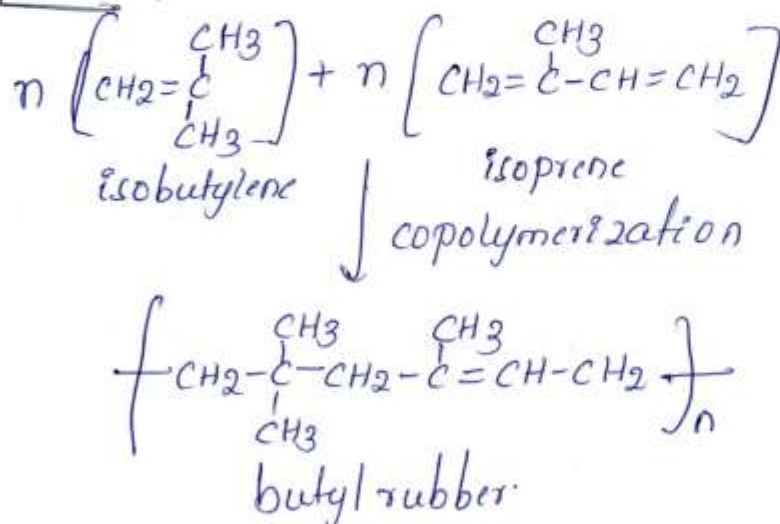 CH3 CH3
n [CH2=C] + n [CH2=C-CH=CH2]
CH3
isobutylene isoprene
copolymerization
CH3 CH3
[CH2-C-CH2-C=CH-CH2]n
CH3
butyl rubber.